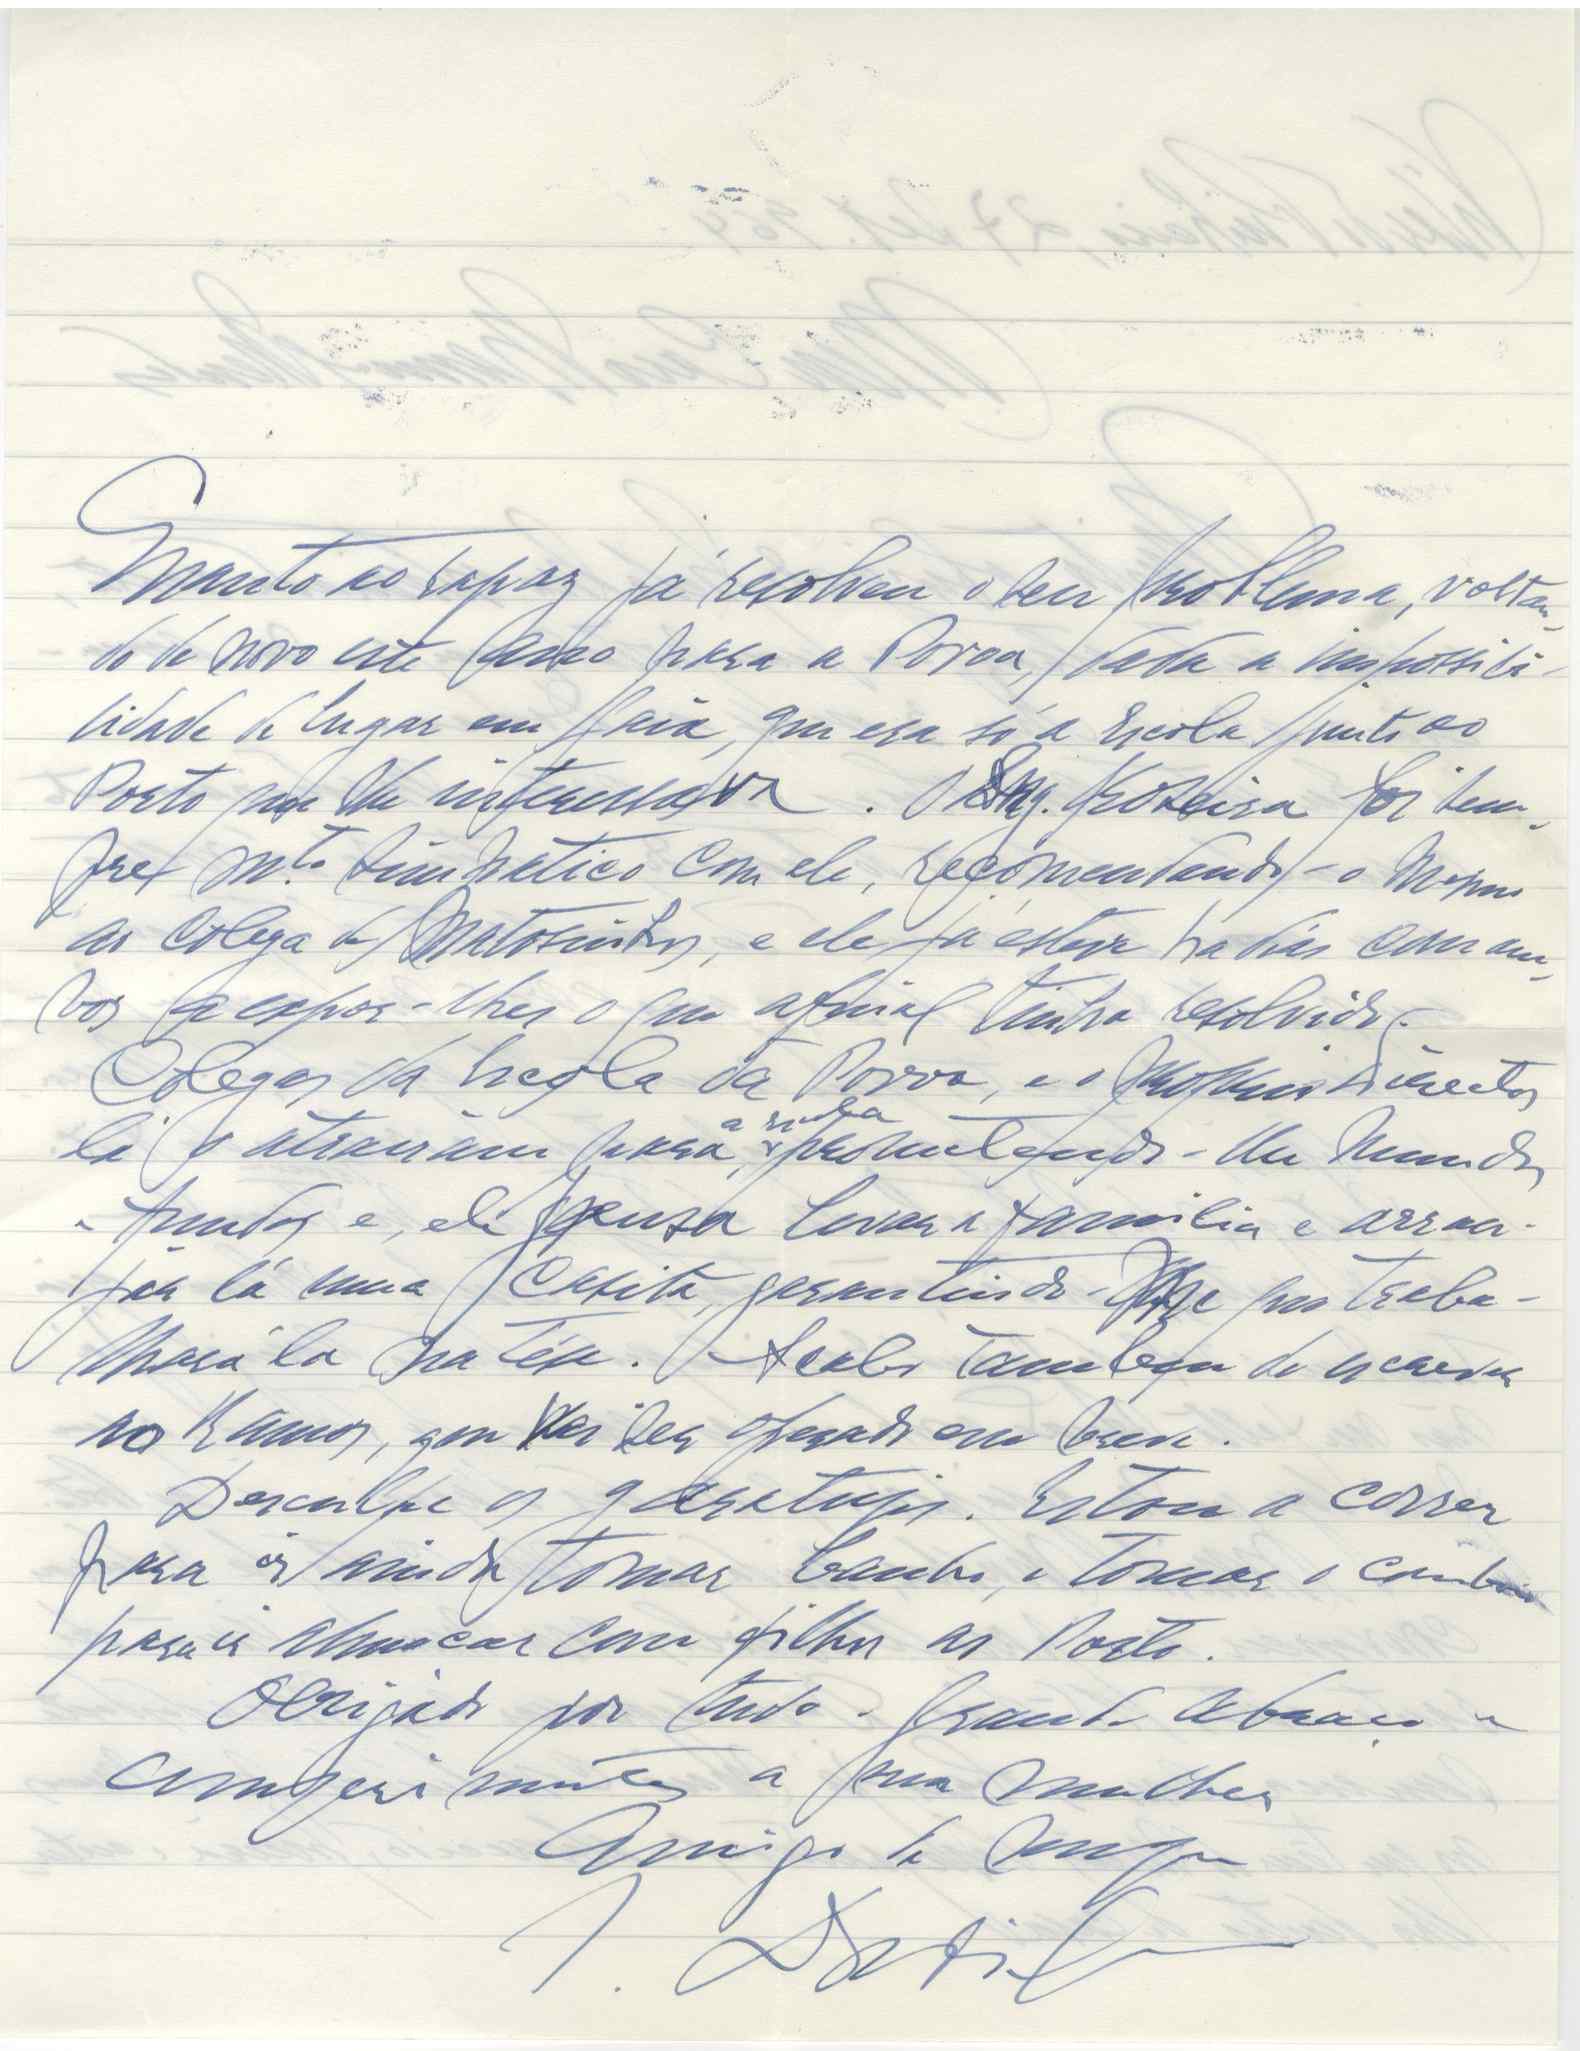 Quanto ao rapaz já resolveu o seu problema, voltan-
do de novo este ano para a Povoa, dada a impossibi-
lidade de lugar em Gaia, que era só a Escola junto ao
Porto que lhe interessava. O Eng. foi sem-
pre m.to simpático com ele, recomendando-o mesmo
ao colega de Matosinhos, e ele já esteve há dias com am-
bos a expor-lhes o que afinal tinha resolvido.
Colegas da Escola da Povoa, e o próprio director
lá o atrairam para a ida, prometendo-lhe mundos
e fundos e, ele pensa levar a familia e arran-
jar lá uma casita, garantindo-lhe que traba-
lhará lá na tése. Acabo tambem de escrever
ao Ramos, que vai ser operado em breve.
Desculpe os garatujos. Estou a correr
para ir ainda tomar banho, e tomar o comboio
para ir almoçar com filhos ao Porto.
Obrigado por tudo. Grande abraço e
cumprimentos a sua mulher
Amigo de sempre
J.